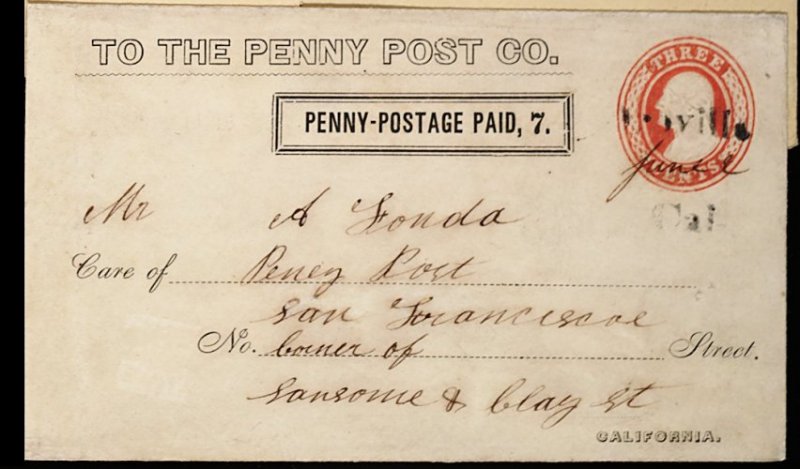 TO THE PENNY POST CO.
THREE
CENTS
PENNY-POSTAGE PAID, 7.
June
Cal.
Mr A Fonda
Care of Peney Post
San Franciscoe
No. Corner of Street.
Sansome & Clay st
CALIFORNIA.